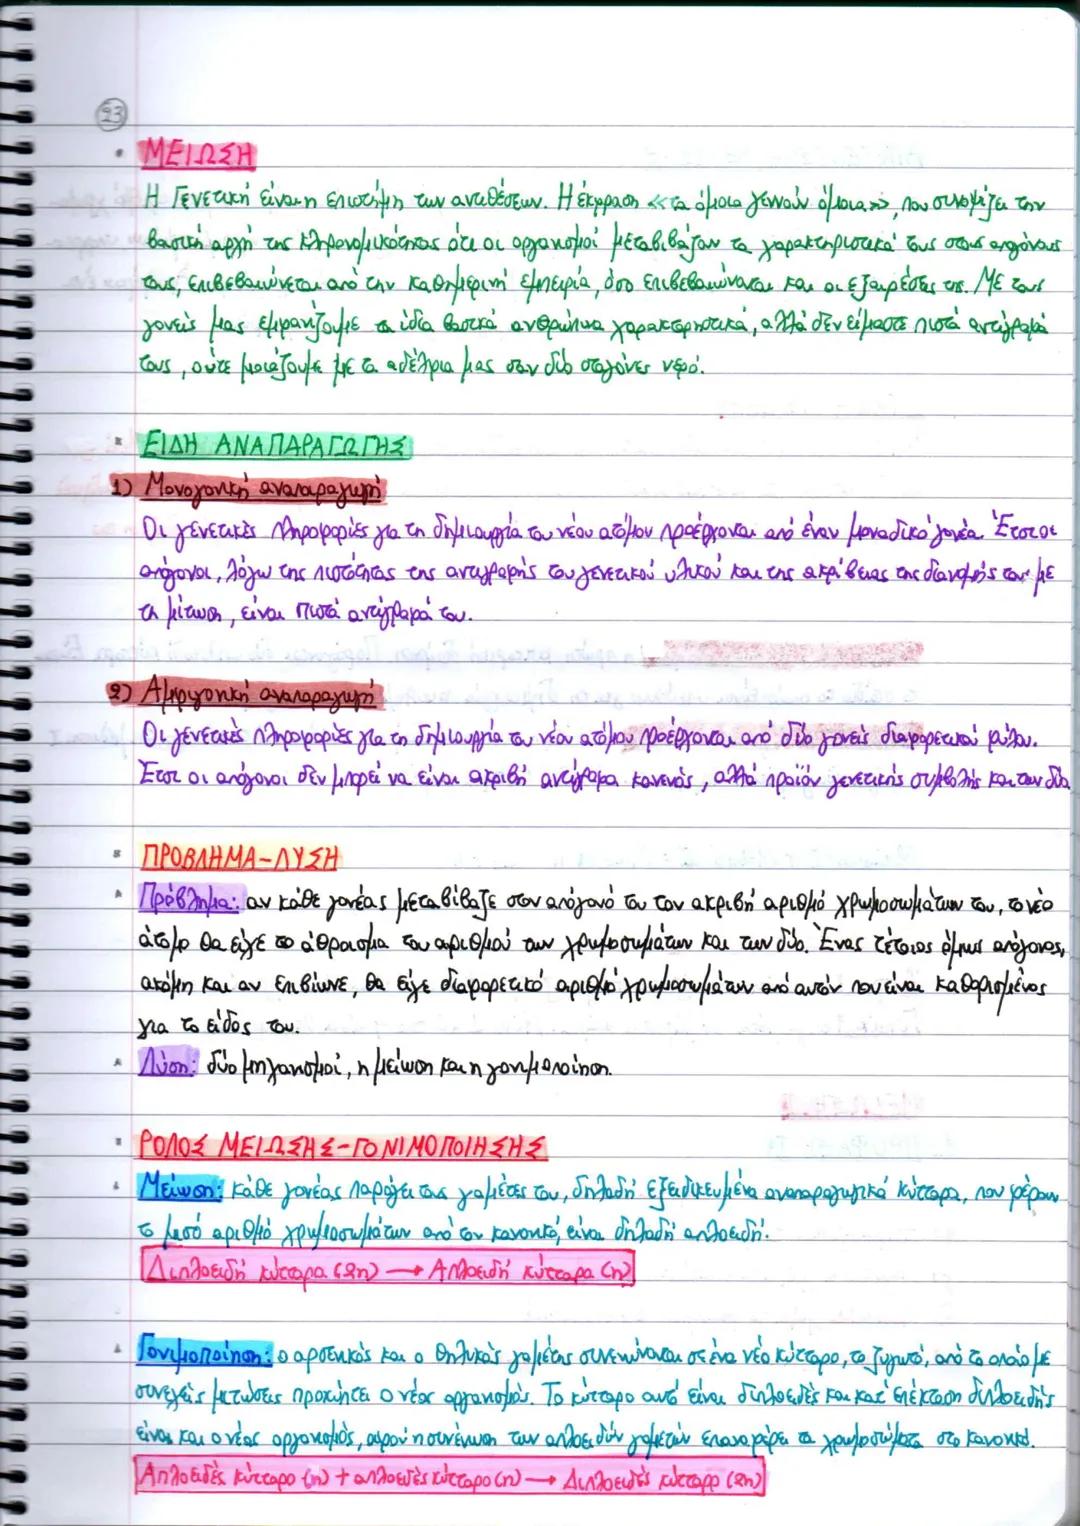 23
• ΜΕΙΩΣΗ
Η Γενετική είναι η επιστήμη των αντιθέσεων. Η έκφραση «τα όμοια γεννούν όμοια», που συνοψίζει την
βασική αρχή της κληρονομικότητας ότι οι οργανισμοί μεταβιβάζουν τα χαρακτηριστικά τους στους απογόνους
τους, επιβεβαιώνεται από την καθημερινή εμπειρία, όσο επιβεβαιώνονται και οι εξαιρέσεις της. Με τους
γονείς μας εμφανίζουμε τα ίδια βασικά ανθρώπινα χαρακτηριστικά, αλλά δεν είμαστε πιστά αντίγραφά
τους, ούτε μοιάζουμε με τα αδέλφια μας σαν δύο σταγόνες νερό.
▪ ΕΙΔΗ ΑΝΑΠΑΡΑΓΩΓΗΣ
1) Μονογονική αναπαραγωγή
Οι γενετικές πληροφορίες για τη δημιουργία του νέου ατόμου προέρχονται από έναν μοναδικό γονέα. Έτσι οι
απόγονοι, λόγω της πιστότητας της αντιγραφής του γενετικού υλικού και της ακρίβειας της διανομής του με
τη μίτωση, είναι πιστά αντίγραφά του.
2) Αμφιγονική αναπαραγωγή
Οι γενετικές πληροφορίες για τη δημιουργία του νέου ατόμου προέρχονται από δύο γονείς διαφορετικού φύλου.
Έτσι οι απόγονοι δεν μπορεί να είναι ακριβή αντίγραφα κανενός, αλλά προϊόν γενετικής συμβολής και των δύο
▪ ΠΡΟΒΛΗΜΑ-ΛΥΣΗ
▴ Πρόβλημα: αν κάθε γονέας μεταβίβαζε στον απόγονό του τον ακριβή αριθμό χρωμοσωμάτων του, το νέο
άτομο θα είχε το άθροισμα του αριθμού των χρωμοσωμάτων και των δύο. Ένας τέτοιος όμως απόγονος,
ακόμη και αν επιβίωνε, θα είχε διαφορετικό αριθμό χρωμοσωμάτων από αυτόν που είναι καθορισμένος
για το είδος του.
▴ Λύση: δύο μηχανισμοί, η μείωση και η γονιμοποίηση.
▪ ΡΟΛΟΣ ΜΕΙΩΣΗΣ-ΓΟΝΙΜΟΠΟΙΗΣΗΣ
▴ Μείωση: κάθε γονέας παράγει τους γαμέτες του, δηλαδή εξειδικευμένα αναπαραγωγικά κύτταρα, που φέρουν
το μισό αριθμό χρωμοσωμάτων από τον κανονικό, είναι δηλαδή απλοειδή.
Διπλοειδή κύτταρα (2n) → Απλοειδή κύτταρα (n)
▴ Γονιμοποίηση: ο αρσενικός και ο θηλυκός γαμέτης συνενώνονται σε ένα νέο κύτταρο, το ζυγωτό, από το οποίο με
συνεχείς μιτώσεις προκύπτει ο νέος οργανισμός. Το κύτταρο αυτό είναι διπλοειδές και κατ' επέκταση διπλοειδής
είναι και ο νέος οργανισμός, αφού η συνένωση των απλοειδών γαμετών επαναφέρει τα χρωμοσώματα στο κανονικό.
Απλοειδές κύτταρο (n) + απλοειδές κύτταρο (n) → Διπλοειδές κύτταρο (2n)